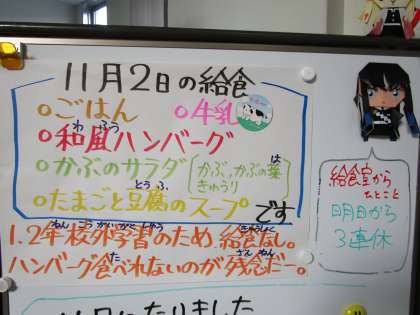 11月2日の給食
○ごはん ○牛乳
○和風ハンバーグ
○かぶのサラダ(かぶ、かぶの葉
きゅうり)
○たまごと豆腐のスープです
1.2年校外学習のため、給食なし。
ハンバーグ食べれないのが残念だー。
給食室から
ひとこと
明日から
3連休